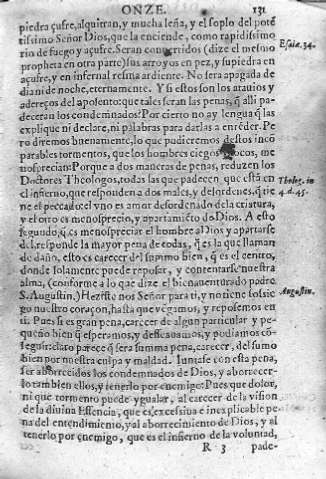 ONZE. 131
piedra çufre, alquitran, y mucha leña, y el soplo del potē
tissimo Señor Dios, que la enciende, como rapidissimo
rio de fuego y açufre. Seran conuertidos (dize el mesmo
propheta en otra parte) sus arroyos en pez, y su piedra en
açufre, y en infernal resina ardiente. No sera apagada de
dia ni de noche, eternamente. Y si estos son los atauios y
adereços del aposento: que tales seran las penas, q̃ alli pa-
deceran los condemnados? Por cierto no ay lengua q̃ las
explique ni declare, ni palabras para darlas a entēder. Pe
ro diremos buenamente, lo que pudieremos destos inco
parables tormentos, que los hombres ciegos locos, me
nosprecian: Porque a dos maneras de penas, reduzen los
Doctores Theologos, todas las que padecen, que està en
el infierno, que responden a dos males, y desordenes, q̃ tie
ne el peccado: el vno es amor desordenado de la criatura,
y el otro es menosprecio, y apartamiēto de Dios. A esto
segundo, q̃ es menospreciar el hombre a Dios y apartarse
del, responde la mayor pena de todas, q̃ es la que llaman
de daño, esto es carecer del summo bien, q̃ es el centro,
donde solamente puede reposar, y contentarse nuestra
alma, (conforme a lo que dize el bienauenturado padre
S. Augustin.) Heziste nos Señor para ti, y no tiene sossie
go nuestro coraçon, hasta que vēgamos, y reposemos en
ti. Pues si es gran pena, carecer de algun particular y pe-
queño bien q̃ esperamos, y desseauamos, y podiamos cō
seguir: claro parece q̃ sera summa pena, carecer, del sumo
bien por nuestra culpa y maldad. Iuntase con esta pena,
ser aborrecidos los condemnados de Dios, y aborrecer-
lo tambien ellos, y tenerlo por enemigo: Pues que dolor,
ni que tormento puede ygualar, al carecer de la vision
de la diuina Essencia, que es excessiua e inexplicable pe
na del entendimiento, y al aborrecimiento de Dios, y al
tenerlo por enemigo, que es el infierno de la voluntad,
R 3 pade-
Esaiæ. 34.
Theolog. in
4. d. 45.
Augustin.